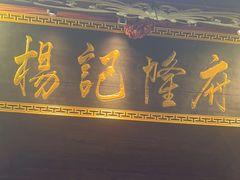 楊記隆府